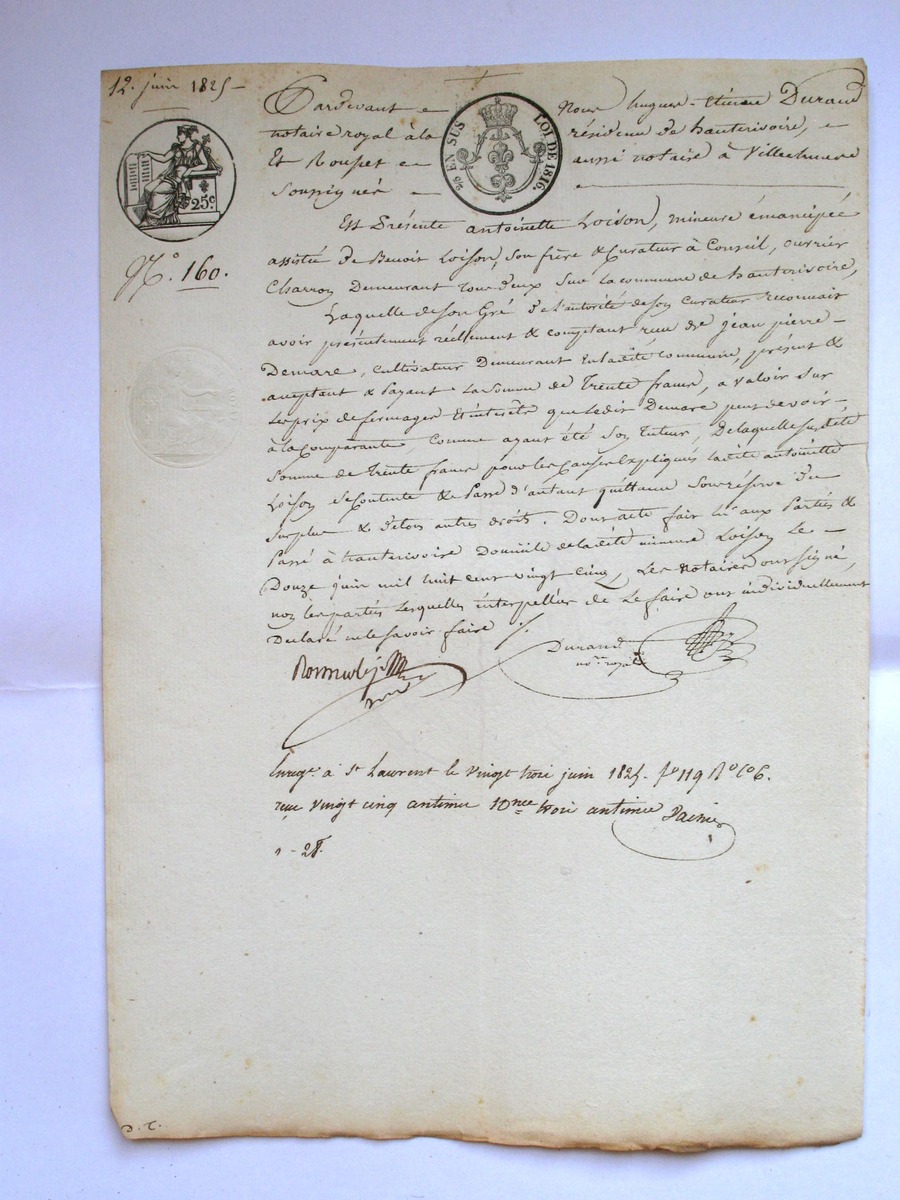 12. juin 1825 -
25.c
N.o 160.
2/5 EN SUS LOI DE 1816.
Pardevant Nous hugues-étienne Durand
notaire royal à la résidence de hauterivoire,
Et aussi notaire à Villechenève
Soussignés
Est Présente antoinette Loison, mineure émancipée
assistée de Benoit Loison, son frère & Curateur à Conseil, ouvrier
Charron Demeurant tous deux sur la commune de hauterivoire,
Laquelle de son Gré & de l'autorité de son curateur reconnait
avoir présentement réellement & comptant reçu de jean pierre
Demare, cultivateur Demeurant en la dite commune, présent &
acceptant & Payant La Somme de Trente francs, a valoir sur
Les prix de fermages Et intérêts que Ledit Demare peut devoir
à la Comparante, comme ayant été son Tuteur, De laquelle susdite
Somme de trente francs pour les Causes Expliqués la dite antoinette
Loison se Contente & Passe d'autant quittance sous réserve du
surplus & de tous autres droits. Dont acte fait lu aux Parties &
Passé à hauterivoire Domicile de la dite mineure Loison Le
Douze juin mil huit cent vingt cinq, Les Notaires ont signé,
non les parties Lesquelles interpellées de Le faire ont individuellement
Déclaré ne le savoir faire ./.
Durand
no.re royal
Enreg.é à St Laurent le vingt trois juin 1825. fo 119 Ro Co 6.
reçu vingt cinq centimes 10me trois centimes
D. T.